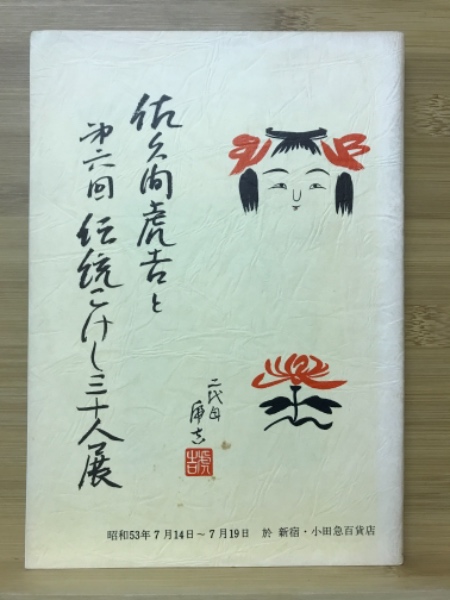 佐久間虎吉と
第六回 伝統こけし三十人展
二代目
虎吉
虎吉
昭和53年7月14日～7月19日 於 新宿・小田急百貨店